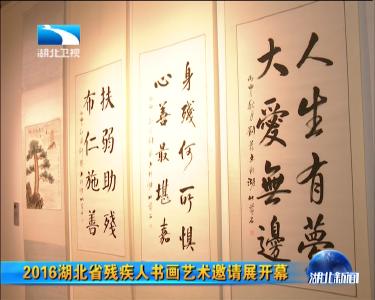 湖北卫视
人生有夢
大愛無邊
身殘何所懼
心善最堪嘉
扶弱助殘
布仁施善
2016湖北省残疾人书画艺术邀请展开幕
湖北新闻